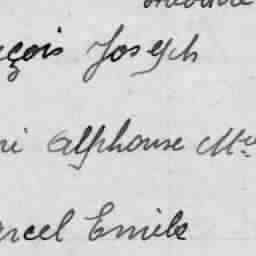 çois Joseph
Alphonse
rcel Emile